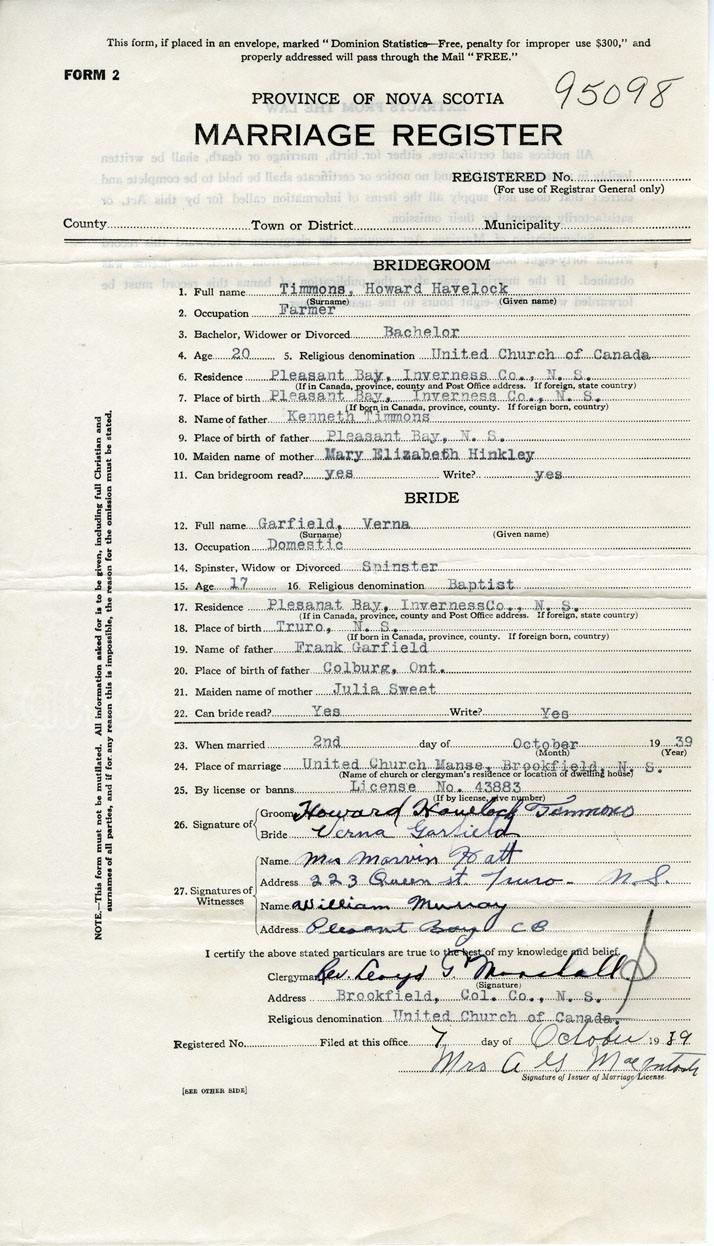 This form, if placed in an envelope, marked "Dominion Statistics—Free, penalty for improper use $300," and
properly addressed will pass through the Mail "FREE."
FORM 2
95098
PROVINCE OF NOVA SCOTIA
MARRIAGE REGISTER
REGISTERED No.
(For use of Registrar General only)
County Town or District Municipality
BRIDEGROOM
1. Full name Timmons, Howard Havelock
(Surname) (Given name)
2. Occupation Farmer
3. Bachelor, Widower or Divorced Bachelor
4. Age 20 5. Religious denomination United Church of Canada
6. Residence Pleasant Bay, Inverness Co., N. S.
(If in Canada, province, county and Post Office address. If foreign, state country)
7. Place of birth Pleasant Bay, Inverness Co., N. S.
(If born in Canada, province, county. If foreign born, country)
8. Name of father Kenneth Timmons
9. Place of birth of father Pleasant Bay, N. S.
10. Maiden name of mother Mary Elizabeth Hinkley
11. Can bridegroom read? yes Write? yes
BRIDE
12. Full name Garfield, Verna
(Surname) (Given name)
13. Occupation Domestic
14. Spinster, Widow or Divorced Spinster
15. Age 17 16. Religious denomination Baptist
17. Residence Plesanat Bay, InvernessCo., N. S.
(If in Canada, province, county and Post Office address. If foreign, state country)
18. Place of birth Truro, N. S.
(If born in Canada, province, county. If foreign born, country)
19. Name of father Frank Garfield
20. Place of birth of father Colburg, Ont.
21. Maiden name of mother Julia Sweet
22. Can bride read? Yes Write? Yes
23. When married 2nd day of October 1939
(Month) (Year)
24. Place of marriage United Church Manse, Brookfield, N. S.
(Name of church or clergyman's residence or location of dwelling house)
25. By license or banns License No. 43883
(If by license, give number)
26. Signature of
Groom Howard Havelock Timmons
Bride Verna Garfield
27. Signatures of Witnesses
Name Mrs Marvin Hatt
Address 223 Queen st. Truro - N.S.
Name William Murray
Address Plesant Bay CB
I certify the above stated particulars are true to the best of my knowledge and belief.
Clergyman Rev. Lloyd G. Marshall
(Signature)
Address Brookfield, Col. Co., N. S.
Religious denomination United Church of Canada.
Registered No. Filed at this office 7 day of October 1939
Mrs A G MacIntosh
Signature of Issuer of Marriage License
[SEE OTHER SIDE]
NOTE.—This form must not be mutilated. All information asked for is to be given, including full Christian and
surnames of all parties, and if for any reason this is impossible, the reason for the omission must be stated.